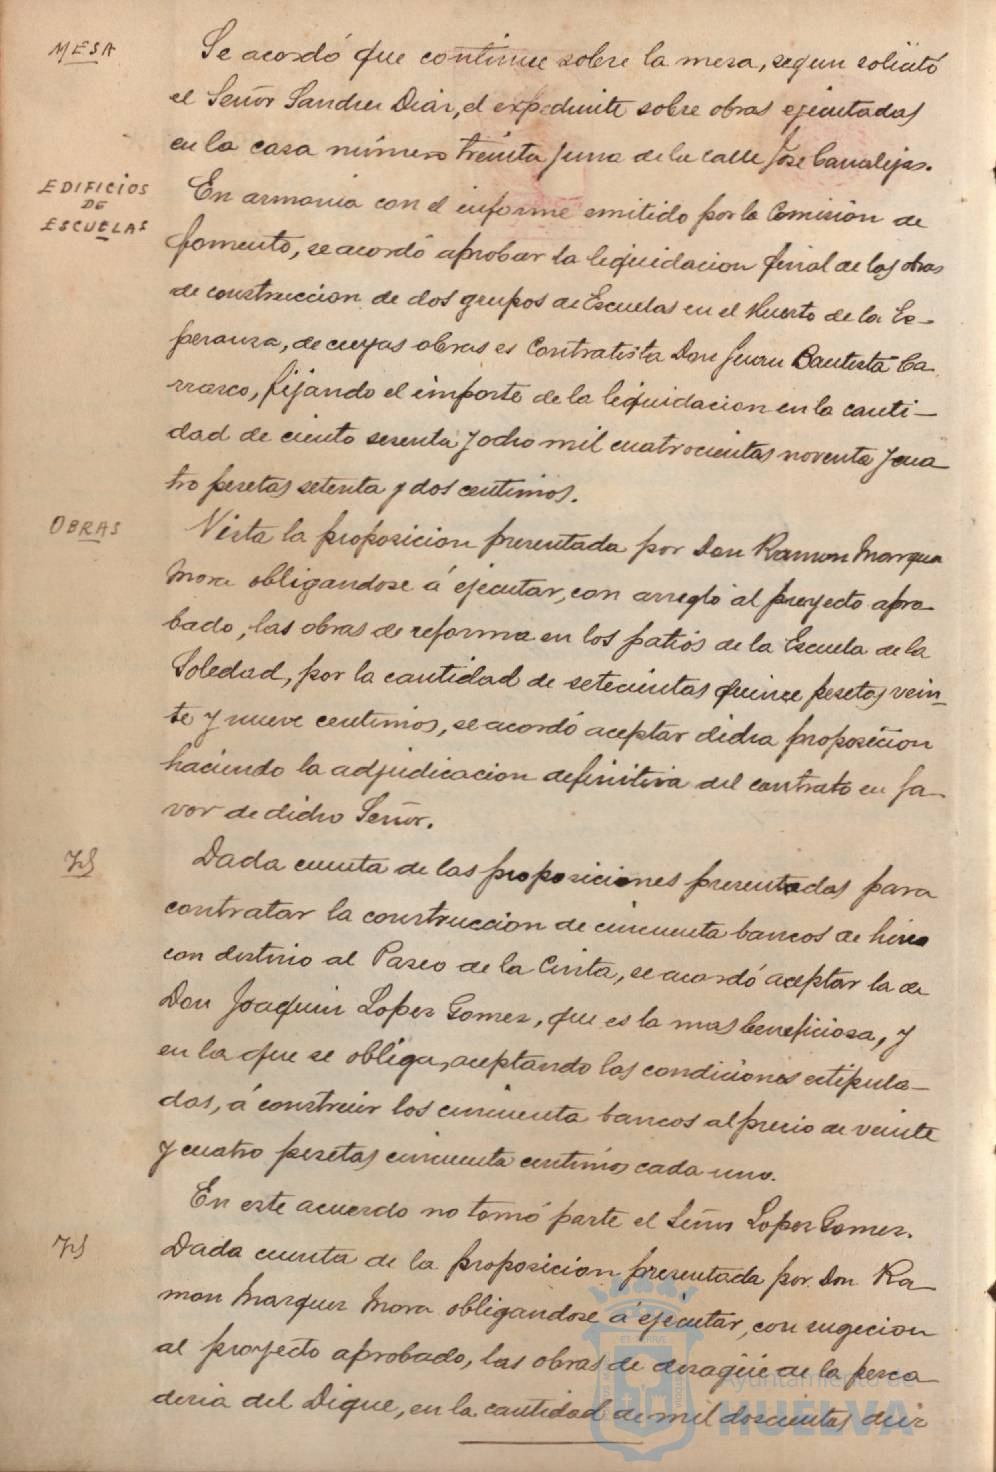 MESA
Se acordó que continue sobre la mesa, segun solicitó
el Señor Sandiu Diar, el expediente sobre obras ejecutadas
en la casa número treinta y una de la calle José Canalejas.
EDIFICIOS
DE
ESCUELAS
En armonia con el informe emitido por la Comisión de
fomento, se acordó aprobar la liquidacion final de las obras
de construccion de dos grupos de Escuelas en el Huerto de la Es-
peranza, de cuyas obras es Contratista Don Juan Bautista Ca-
rrasco, fijando el importe de la liquidacion en la canti-
dad de ciento sesenta y ocho mil cuatrocientas noventa y cua
tro pesetas setenta y dos centimos.
OBRAS
Vista la proposicion presentada por Don Ramon Marque
Mora obligandose á ejecutar, con arreglo al proyecto apro-
bado, las obras de reforma en los patios de la Escuela de la
Soledad, por la cantidad de setecientas quince pesetas vein-
te y nueve centimos, se acordó aceptar dicha proposicion
haciendo la adjudicacion definitiva del contrato en fa-
vor de dicho Señor.
Yd
Dada cuenta de las proposiciones presentadas para
contratar la construccion de cincuenta bancos de hierro
con destino al Paseo de la Cinta, se acordó aceptar la de
Don Joaquin Lopez Gomez, que es la mas beneficiosa, y
en la que se obliga, aceptando las condiciones estipula-
das, á construir los cincuenta bancos al precio de veinte
y cuatro pesetas cincuenta centimos cada uno.
En este acuerdo no tomó parte el Señor Lopez Gomez.
Yd
Dada cuenta de la proposicion presentada por Don Ra-
mon Marquez Mora obligandose á ejecutar, con sugecion
al proyecto aprobado, las obras de desagüe de la pesca
deria del Dique, en la cantidad de mil doscientas diez
Ayuntamiento de
HUELVA